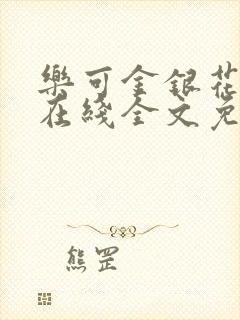 樂可金銀花
在綫全文免
熊罡